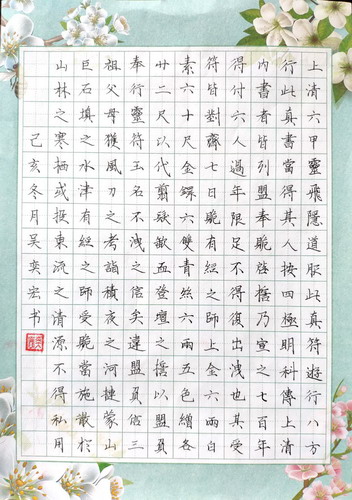 上清六甲靈飛隱道服此真符遊行八方
行此真書當得其人按四極明科傳上清
内書者皆列盟奉跪啓誓乃宣之七百年
得付六人過年限足不得復出洩也其受
符皆對齋七日跪有經之師上金六兩白
素六十尺金鐶六雙青絲六兩五色繒各
廿二尺以代翦髮歃血登壇之誓以盟負
奉行靈符不洩之信矣違盟負信三
祖父母獲風刀之考詣積夜之河揵蒙山
巨石填之水津有經之師受貺當施散於
山林之寒栖或投東流之清源不得私用
己亥冬月吴奕宏书